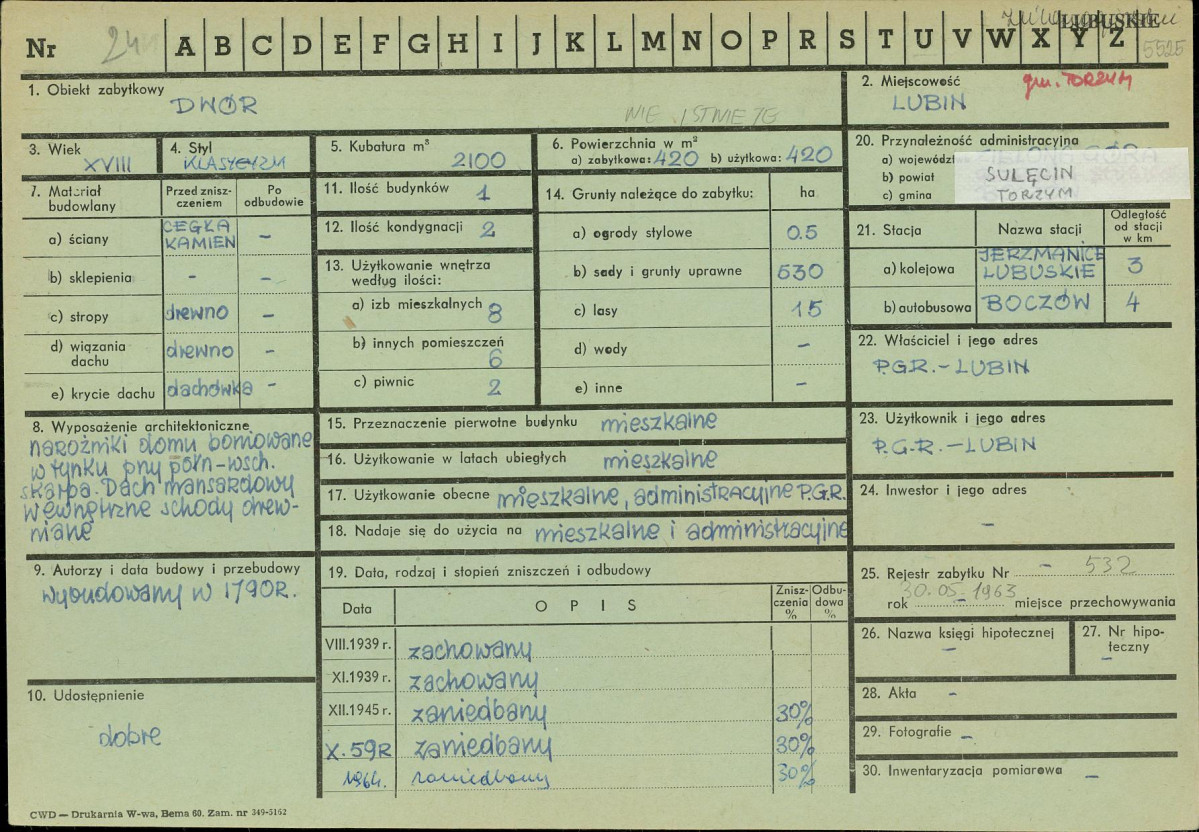 LUBUSKIE
Nr 24 A B C D E F G H I J K L M N O P R S T U V W X Y Z
5525
1. Obiekt zabytkowy
DWÓR
NIE ISTNIEJE
2. Miejscowość
gm. TORZYM
LUBIN
3. Wiek
XVIII
4. Styl
KLASYCYZM
5. Kubatura m³
2100
6. Powierzchnia w m²
a) zabytkowa: 420 b) użytkowa: 420
20. Przynależność administracyjna
a) wojewódz
b) powiat SULĘCIN
c) gmina TORZYM
7. Materiał budowlany
Przed znisz-
czeniem
Po
odbudowie
a) ściany CEGŁA KAMIEŃ –
b) sklepienia – –
c) stropy drewno –
d) wiązania dachu drewno –
e) krycie dachu dachówka –
11. Ilość budynków 1
12. Ilość kondygnacji 2
13. Użytkowanie wnętrza
według ilości:
a) izb mieszkalnych 8
b) innych pomieszczeń 6
c) piwnic 2
14. Grunty należące do zabytku: ha
a) ogrody stylowe 0.5
b) sady i grunty uprawne 530
c) lasy 15
d) wody –
e) inne –
21. Stacja Nazwa stacji
Odległość
od stacji
w km
a) kolejowa JERZMANICE LUBUSKIE 3
b) autobusowa BOCZÓW 4
22. Właściciel i jego adres
P.G.R. – LUBIN
8. Wyposażenie architektoniczne
narożniki domu boniowane
w tynku przy półn-wsch.
skarpa. Dach mansardowy
wewnętrzne schody drew-
niane
15. Przeznaczenie pierwotne budynku mieszkalne
16. Użytkowanie w latach ubiegłych mieszkalne
17. Użytkowanie obecne mieszkalne, administracyjne P.G.R.
18. Nadaje się do użycia na mieszkalne i administracyjne
23. Użytkownik i jego adres
P.G.R. – LUBIN
24. Inwestor i jego adres
–
9. Autorzy i data budowy i przebudowy
wybudowany w 1790R.
19. Data, rodzaj i stopień zniszczeń i odbudowy
Data O P I S
Znisz-
czenia
%
Odbu-
dowa
%
VIII.1939 r. zachowany
XI.1939 r. zachowany
XII.1945 r. zaniedbany 30%
X. 59R zaniedbany 30%
1964. zaniedbany 30%
25. Rejestr zabytku Nr – 532
30.05.1963
rok – miejsce przechowywania
26. Nazwa księgi hipotecznej
–
27. Nr hipo-
teczny
–
28. Akta –
29. Fotografie –
30. Inwentaryzacja pomiarowa –
10. Udostępnienie
dobre
CWD — Drukarnia W-wa, Bema 60. Zam. nr 349-5162